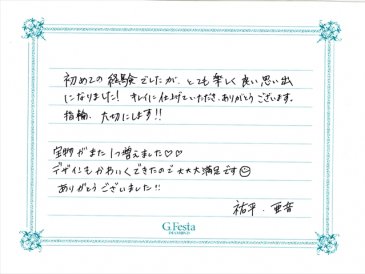 初めての経験でしたが、とても楽しく良い思い出
になりました! キレイに仕上げていただき、ありがとうございます。
指輪、大切にします!!
宝物がまた1つ増えました♡♡
デザインもかわいくできたので大大大満足です☺
ありがとうございました!!
祐平・亜音
G.Festa